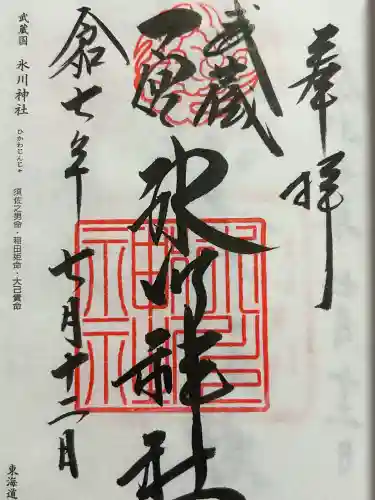 奉拝
武蔵
一宮
氷川神社
令和七年
七月十二日
武蔵国 氷川神社 ひかわじんじゃ 須佐之男命・稲田姫命・大己貴命
東海道